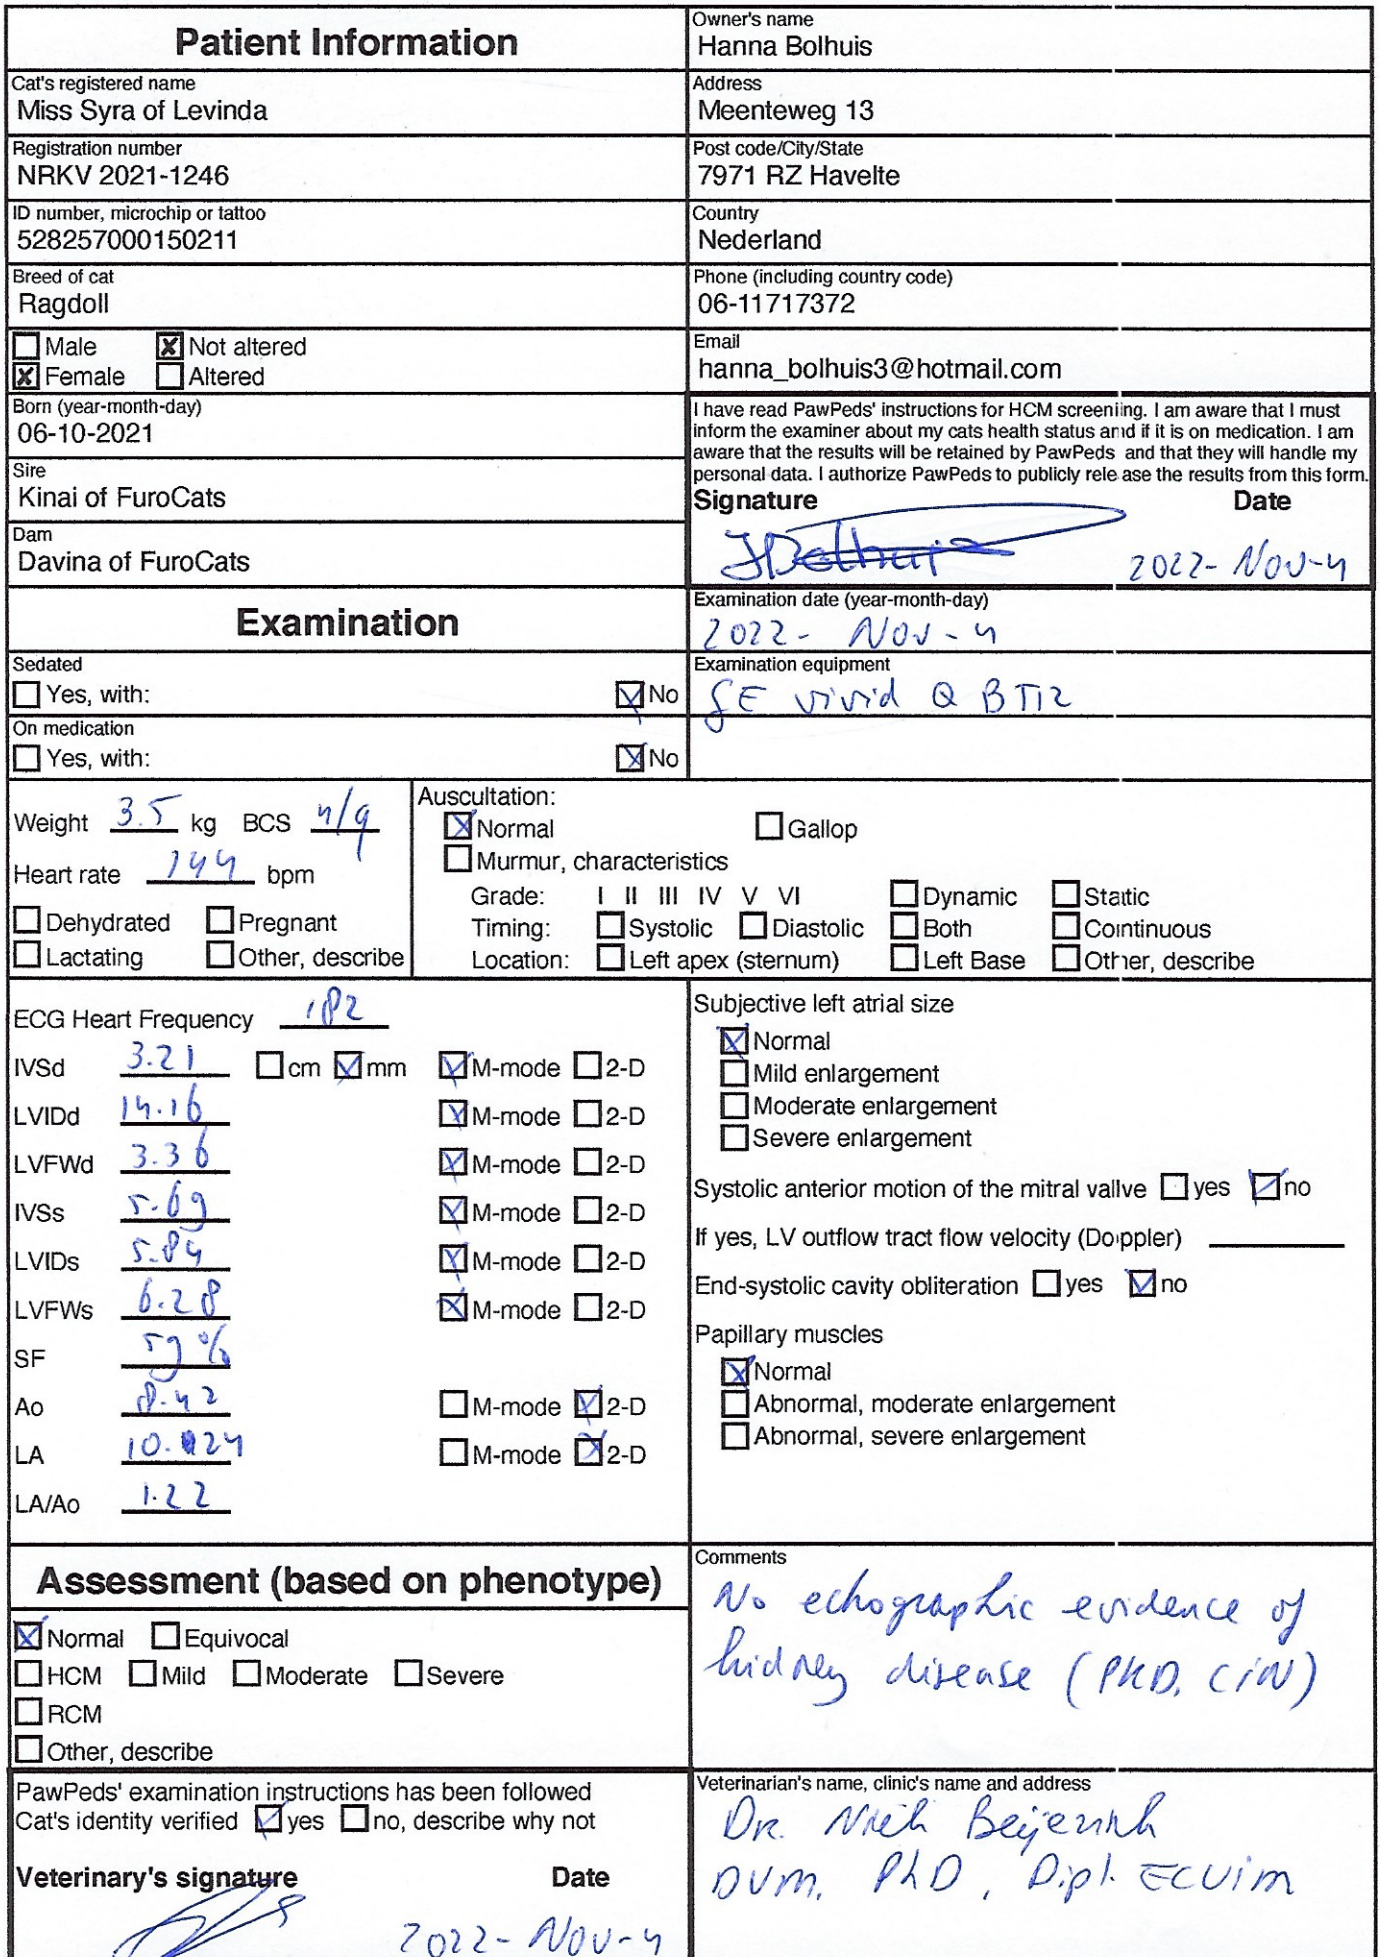 Patient Information
Owner's name
Hanna Bolhuis
Cat's registered name
Miss Syra of Levinda
Address
Meenteweg 13
Registration number
NRKV 2021-1246
Post code/City/State
7971 RZ Havelte
ID number, microchip or tattoo
528257000150211
Country
Nederland
Breed of cat
Ragdoll
Phone (including country code)
06-11717372
Male Not altered
Female Altered
Email
hanna_bolhuis3@hotmail.com
Born (year-month-day)
06-10-2021
I have read PawPeds' instructions for HCM screening. I am aware that I must
inform the examiner about my cats health status and if it is on medication. I am
aware that the results will be retained by PawPeds and that they will handle my
personal data. I authorize PawPeds to publicly release the results from this form.
Sire
Kinai of FuroCats
Signature Date
HBolhuis 2022-Nov-4
Dam
Davina of FuroCats
Examination
Examination date (year-month-day)
2022-Nov-4
Sedated
Yes, with: No
Examination equipment
GE vivid Q BT12
On medication
Yes, with: No
Weight 3.5 kg BCS 4/9
Heart rate 144 bpm
Dehydrated Pregnant
Lactating Other, describe
Auscultation:
Normal Gallop
Murmur, characteristics
Grade: I II III IV V VI Dynamic Static
Timing: Systolic Diastolic Both Continuous
Location: Left apex (sternum) Left Base Other, describe
ECG Heart Frequency 182
IVSd 3.21 cm mm M-mode 2-D
LVIDd 14.16 M-mode 2-D
LVFWd 3.36 M-mode 2-D
IVSs 5.69 M-mode 2-D
LVIDs 5.84 M-mode 2-D
LVFWs 6.28 M-mode 2-D
SF 59%
Ao 8.42 M-mode 2-D
LA 10.24 M-mode 2-D
LA/Ao 1.22
Subjective left atrial size
Normal
Mild enlargement
Moderate enlargement
Severe enlargement
Systolic anterior motion of the mitral vallve yes no
If yes, LV outflow tract flow velocity (Doppler)
End-systolic cavity obliteration yes no
Papillary muscles
Normal
Abnormal, moderate enlargement
Abnormal, severe enlargement
Assessment (based on phenotype)
Normal Equivocal
HCM Mild Moderate Severe
RCM
Other, describe
Comments
No echographic evidence of
kidney disease (PKD, CIN)
PawPeds' examination instructions has been followed
Cat's identity verified yes no, describe why not
Veterinary's signature Date
2022-Nov-4
Veterinarian's name, clinic's name and address
Dr. Niek Beijerink
DVM, PhD, Dipl. ECVIM